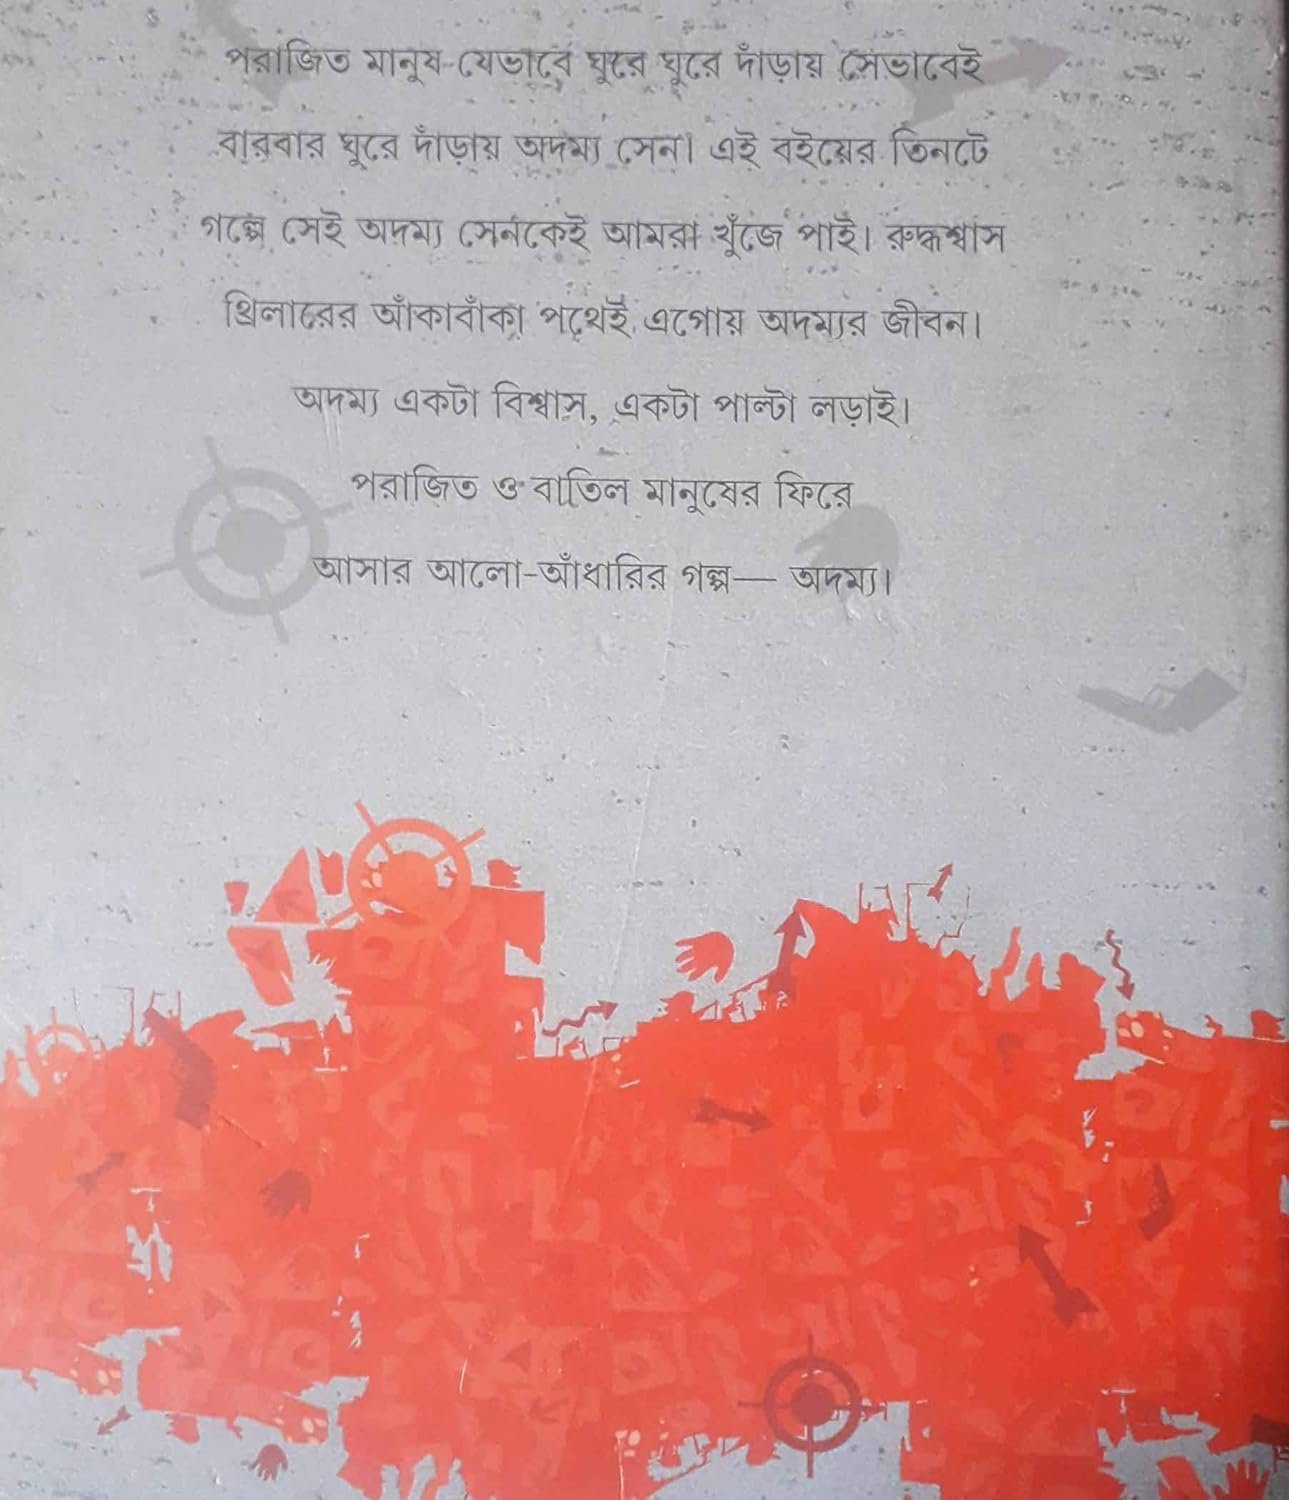 পরাজিত মানুষ যেভাবে ঘুরে ঘুরে দাঁড়ায় সেভাবেই
বারবার ঘুরে দাঁড়ায় অদম্য সেন। এই বইয়ের তিনটে
গল্পে সেই অদম্য সেনকেই আমরা খুঁজে পাই। রুদ্ধশ্বাস
থ্রিলারের আঁকাবাঁকা পথেই এগোয় অদম্যর জীবন।
অদম্য একটা বিশ্বাস, একটা পাল্টা লড়াই।
পরাজিত ও বাতিল মানুষের ফিরে
আসার আলো-আঁধারির গল্প— অদম্য।